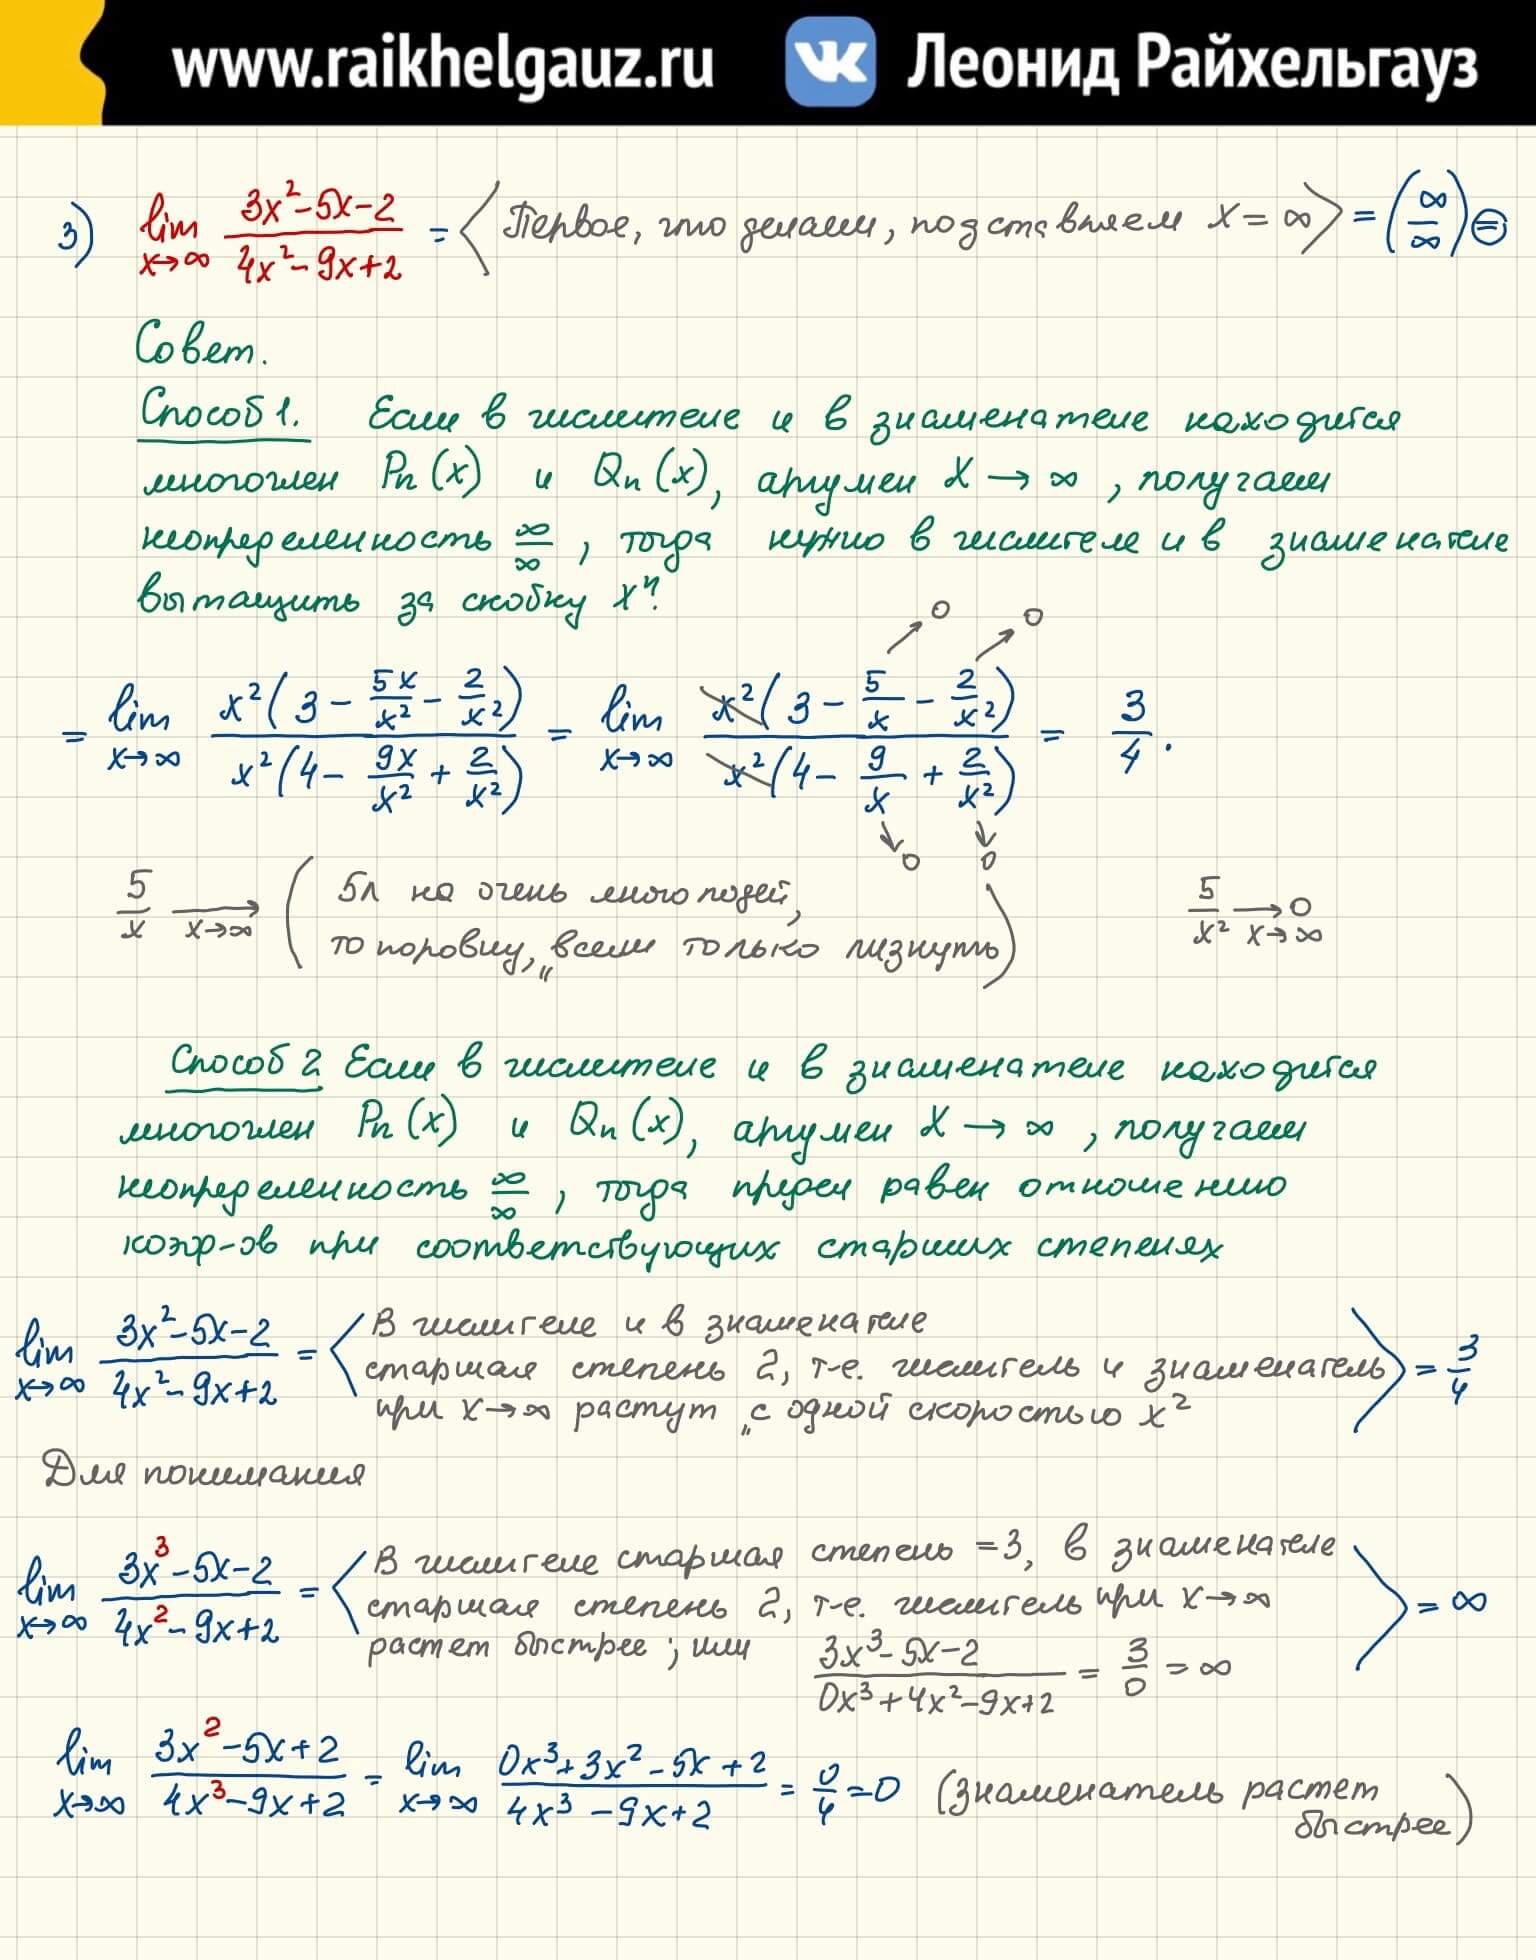 www.raikhelgauz.ru Леонид Райхельгауз
3) lim x→∞ (3x²-5x-2)/(4x²-9x+2) = ⟨Первое, что делаем, подставляем x = ∞⟩ = (∞/∞) ⊜
Совет.
Способ 1. Если в числителе и в знаменателе находится
многочлен Pₙ(x) и Qₙ(x), аргумен X → ∞, получаем
неопределенность ∞/∞, тогда нужно в числителе и в знаменателе
вытащить за скобку xⁿ.
= lim x→∞ x²(3 - 5x/x² - 2/x²)/x²(4 - 9x/x² + 2/x²) = lim x→∞ x²(3 - 5/x - 2/x²)/x²(4 - 9/x + 2/x²) = 3/4.
→0 →0
→0 →0
5/x →x→∞ (5л на очень много людей, 5/x² →x→∞ 0
то поровну, „всем только лизнуть)
Способ 2 Если в числителе и в знаменателе находится
многочлен Pₙ(x) и Qₙ(x), аргумен X → ∞, получаем
неопределенность ∞/∞, тогда предел равен отношению
коэф-ов при соответствующих старших степенях
lim x→∞ (3x²-5x-2)/(4x²-9x+2) = ⟨В числителе и в знаменателе
старшая степень 2, т-е. числитель и знаменатель
при x→∞ растут „с одной скоростью x²⟩ = 3/4
Для понимания
lim x→∞ (3x³-5x-2)/(4x²-9x+2) = ⟨В числителе старшая степень =3, в знаменателе
старшая степень 2, т-е. числитель при x→∞
растет быстрее; или (3x³-5x-2)/(0x³+4x²-9x+2) = 3/0 = ∞⟩ = ∞
lim x→∞ (3x²-5x+2)/(4x³-9x+2) = lim x→∞ (0x³+3x²-5x+2)/(4x³-9x+2) = 0/4 = 0 (знаменатель растет
быстрее)